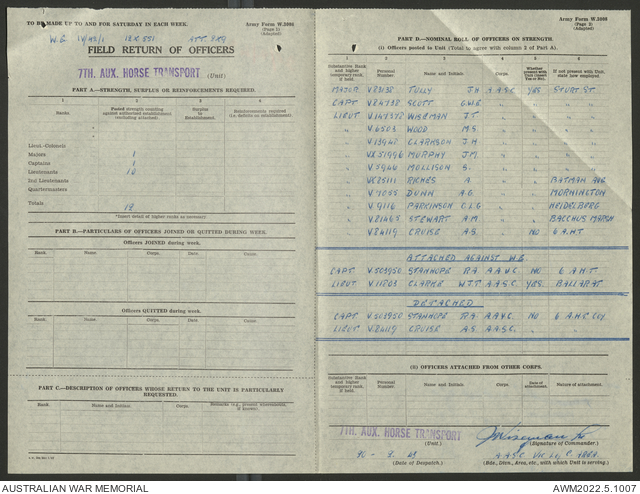 TO BE MADE UP TO AND FOR SATURDAY IN EACH WEEK.
Army Form W.3008
(Page 1)
(Adapted)
FIELD RETURN OF OFFICERS
7TH. AUX. HORSE TRANSPORT (Unit)
PART A.—STRENGTH, SURPLUS OR REINFORCEMENTS REQUIRED.
1 2 3 4
Ranks. Posted strength counting against authorized establishment (excluding attached). Surplus to Establishment. Reinforcements required (i.e. deficits on establishment)
Lieut.-Colonels
Majors 1
Captains 1
Lieutenants 10
2nd Lieutenants
Quartermasters
Totals 12
*Insert detail of higher ranks as necessary
PART B.—PARTICULARS OF OFFICERS JOINED OR QUITTED DURING WEEK.
Officers JOINED during week.
Rank. Name. Corps. Date.
Officers QUITTED during week.
Rank. Name. Corps. Date.
PART C.—DESCRIPTION OF OFFICERS WHOSE RETURN TO THE UNIT IS PARTICULARLY REQUESTED.
Rank. Name and Initials. Corps.
Army Form W.3008
(Page 2)
(Adapted)
PART D.—NOMINAL ROLL OF OFFICERS ON STRENGTH.
(i) Officers posted to Unit (Total to agree with column 2 of Part A).
1 2 3 4 5 6
Substantive Rank and higher temporary rank if held. Personal Number. Name and Initials. Corps. If not present with Unit, state how employed.
MAJOR V83138 TULLY J.H. A.A.S.C. YES STURT ST.
CAPT V84738 SCOTT G.W.B. " "
LIEUT WISEMAN J.T. " "
" V6503 WOOD M.S. " "
" V13940 CLARKSON J.H. " "
" VX51996 MURPHY J.M. " "
" V5946 MOLLISON S. " "
" VX25111 RICHES A. " " BATMAN AVE
" V7055 DUNN A.G. " " MORNINGTON
" V9116 PARKINSON C.L.G. " " HEIDELBERG
" V81465 STEWART A.M. " " BACCHUS MARSH
" V84119 CRUISE A.S. " NO 6 A.H.T
ATTACHED AGAINST W.E
CAPT V503950 STANHOPE R.A. A.A.V.C. NO 6 A.H.T.
LIEUT V11803 CLARKE W.J.T. A.A.S.C. YES. BALLARAT
DETACHED
CAPT V.503950 STANHOPE R.A. A.A.V.C. NO 6 A.H.T. COY.
LIEUT V84119 CRUISE A.S. A.A.S.C. " "
(ii) OFFICERS ATTACHED FROM OTHER CORPS.
Substantive Rank and higher temporary rank if held. Personal Number. Name and Initials. Corps. Date of attachment. Nature of attachment.
7TH. AUX. HORSE TRANSPORT
(Unit.) (Signature of Commander.)
(Date of Despatch.) (Bde., Divn., Area, etc., with which Unit is serving.)
AUSTRALIAN WAR MEMORIAL
AWM2022.5.1007